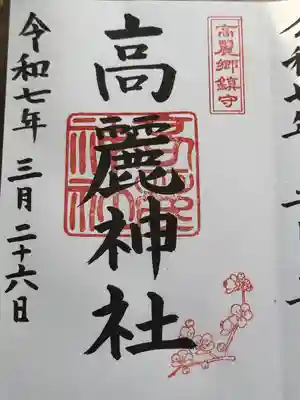 高麗郷鎮守
高麗神社
令和七年 三月二十六日